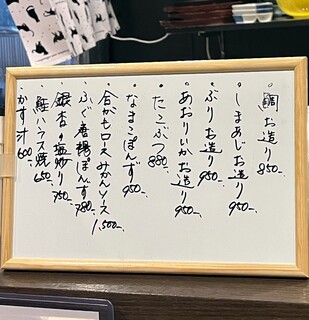 ・鯛お造り 850-
・しまあじお造り 950-
・ぶりお造り 950-
・あおりいかお造り 950-
・たこぶつ 850-
・なまこぽんず 950-
・合がもロースみかんソース 1,500-
・ふぐ唐揚ぽんず 780-
・銀杏の塩炒り 750-
・鮭ハラス焼 650-
・かす汁 600-